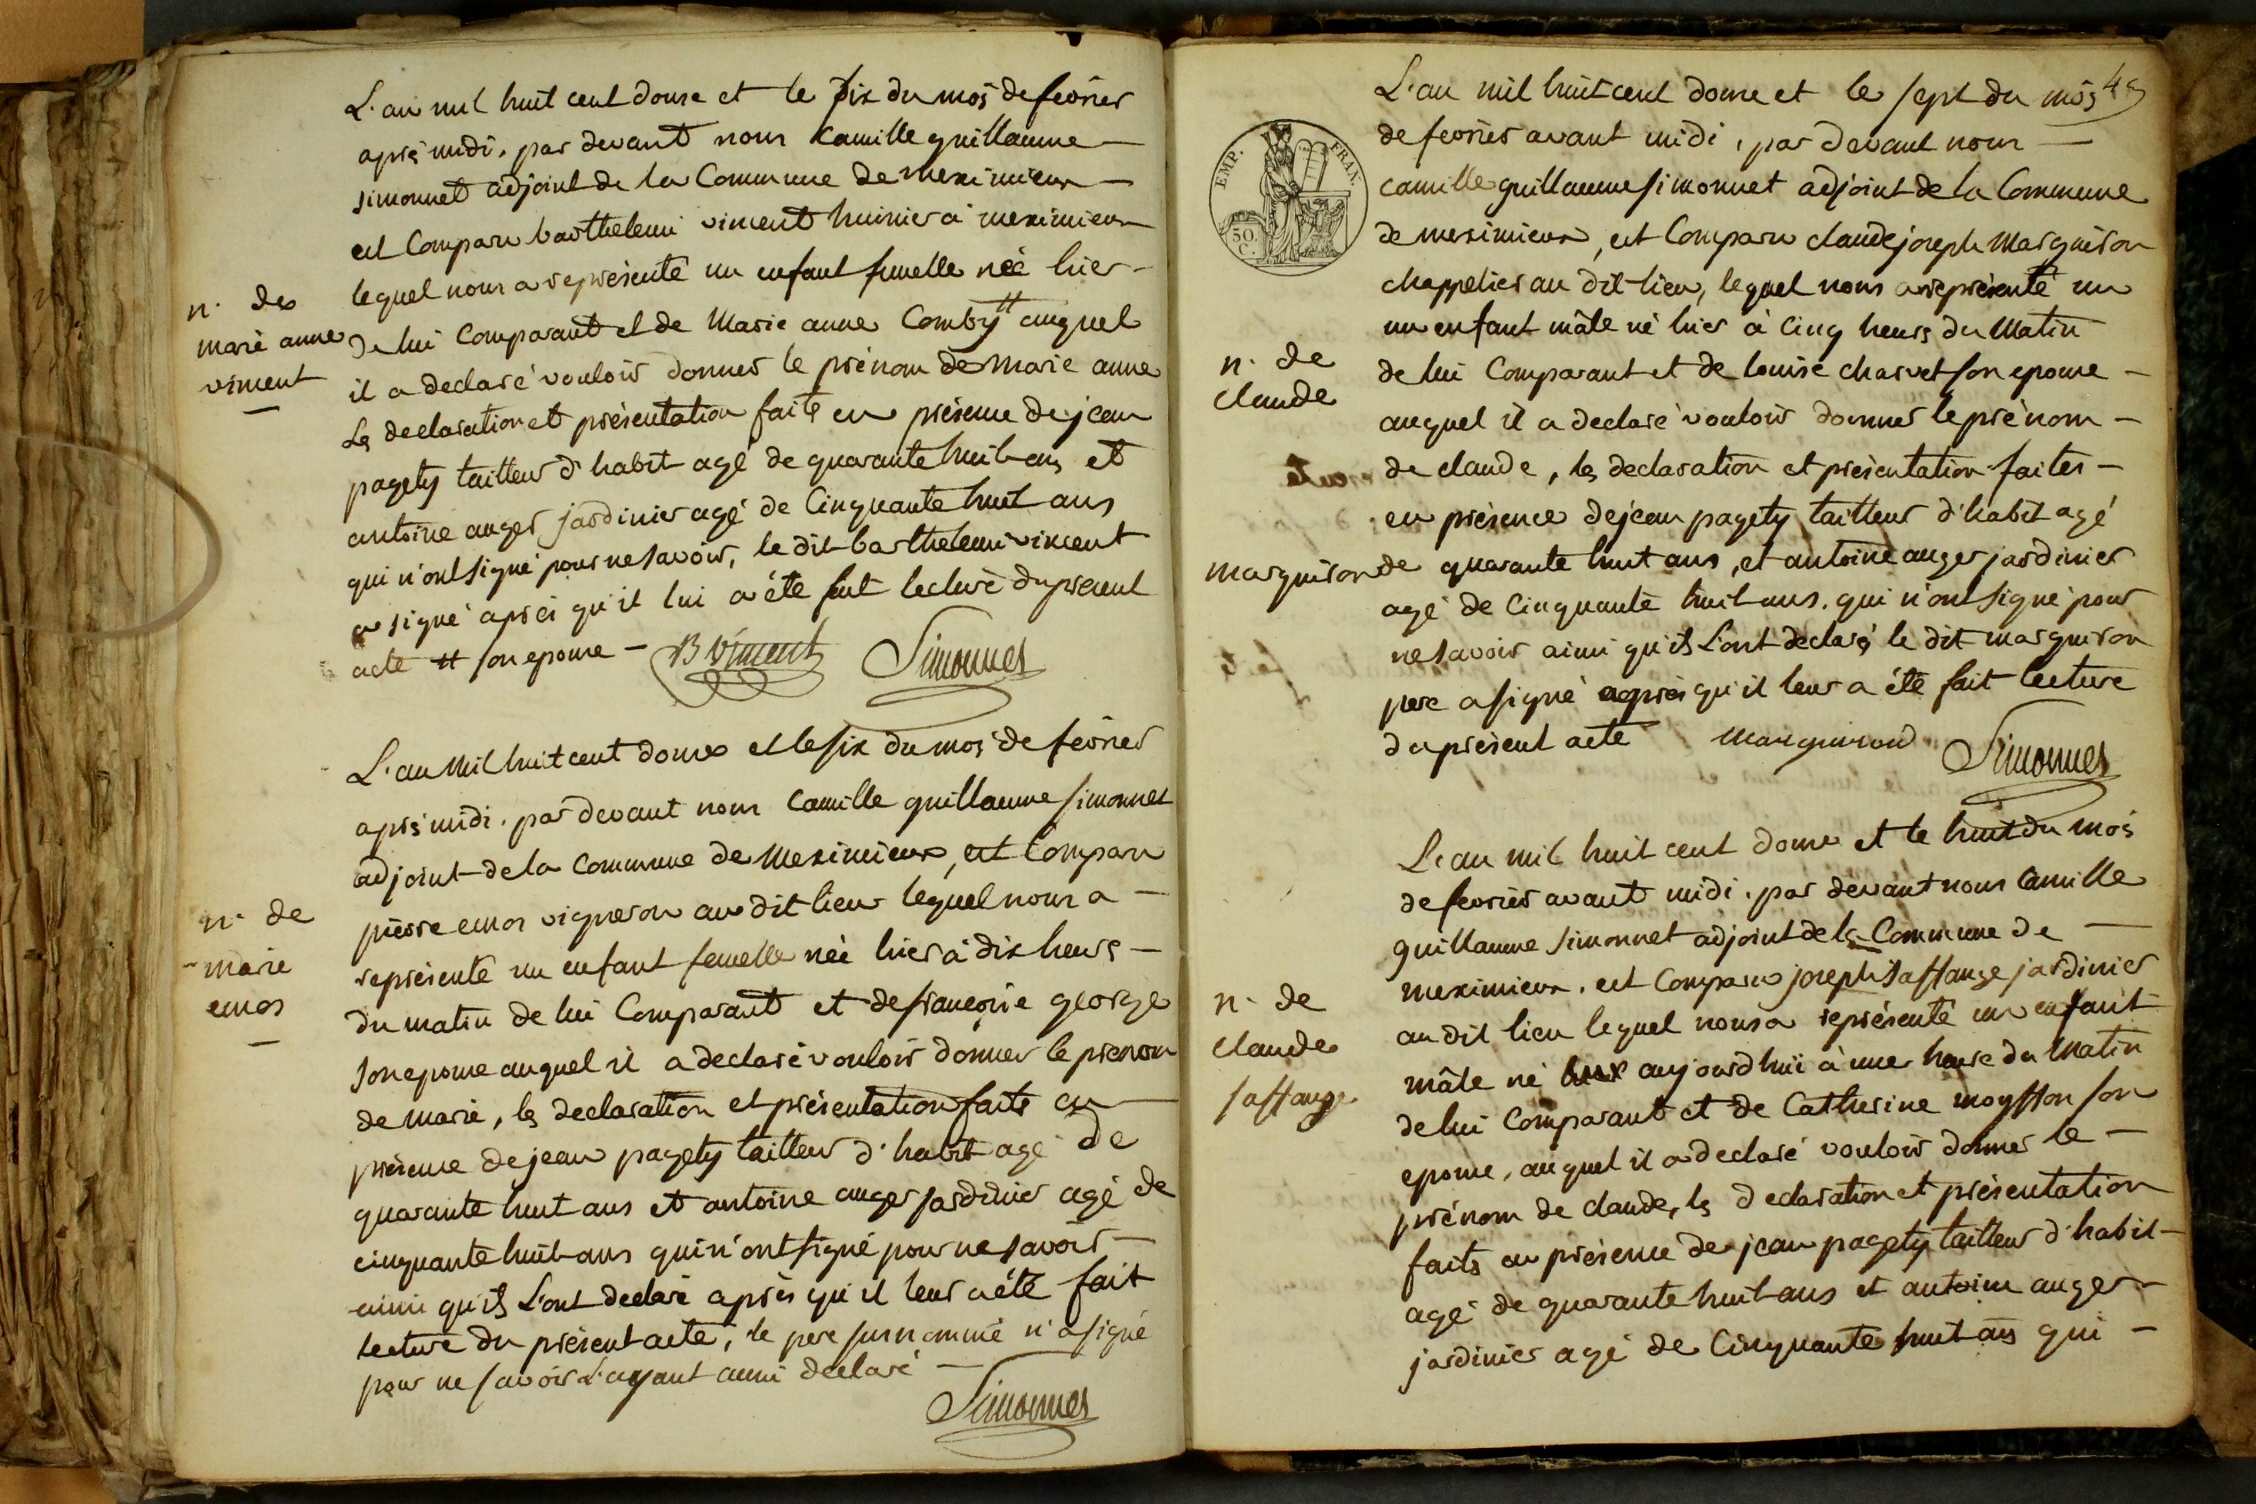 L'an mil huit cent douse et le six du mois de fevrier
après midi, par devant nous camille guillaume
simonnet adjoint de la Commune de meximieux
est Comparu barthelemi vincent huinier a meximieux
lequel nous a représenté un enfant femelle née hier
n. de
marie anne
vincent
de lui Comparant et de Marie anne Comby tt auquel
il a declaré vouloir donner le prénom de marie anne
les declaration et présentation faite en présence de jean
pagety tailleur d'habit agé de quarante huit ans et
antoine auger jardinier agé de Cinquante huit ans
qui n'ont signé pour ne savoir, le dit barthelemi vincent
a signé après qu'il lui a été fait lecture du present
acte tt son epouse – B Vincent Simonnet
L'an Mil huit cent douse et le six du mois de fevrier
après midi, par devant nous Camille guillaume simonnet
adjoint de la Commune de Meximieux, est Comparu
pierre emos vigneron au dit lieu lequel nous a
n. de
marie
emos
représenté un enfant femelle née hier à dix heurs
du matin de lui Comparant et de françoise george
son epouse auquel il a declaré vouloir donner le prenom
de marie, les declaration et présentation faite en
présence de jean pagety tailleur d'habit agé de
quarante huit ans et antoine auger jardinier agé de
cinquante huit ans qui n'ont signé pour ne savoir
ainsi qu'ils L'ont declaré après qu'il leur a été fait
lecture du présent acte, le pere surnommé n'a signé
pour ne savoir L'ayant aussi declaré
Simonnet
L'an mil huit cent douse et le sept du mois
de fevrier avant midi, par devant nous
camille guillaume simonnet adjoint de la Commune
EMP. FRAN.
50
C.
de meximieux, est Comparu claude joseph Marguiron
chappelier au dit lieu, lequel nous a représenté un
un enfant mâle né hier à cinq heurs du Matin
n. de
claude
marguiron
de lui Comparant et de louise charvet son epouse
auquel il a declaré vouloir donner le prénom
de claude, les declaration et présentation faites
en présence de jean pagety tailleur d'habit agé
de quarante huit ans, et antoine auger jardinier
agé de Cinquante huit ans, qui n'ont signé pour
ne savoir ainsi qu'ils L'ont declaré le dit marguiron
pere a signé après qu'il leur a été fait lecture
du présent acte marguiron Simonnet
L'an mil huit cent douse et le huit du mois
de fevrier avant midi, par devant nous Camille
guillaume simonnet adjoint de la Commune de
meximieux, est Comparu joseph saffange jardinier
n. de
claude
saffange
au dit lieu lequel nous a représenté un enfant
mâle né hier aujourdhui à une heure du Matin
de lui Comparant et de Catherine moysson son
epouse, auquel il a declaré vouloir donner le
prénom de claude, les declaration et présentation
faits en présence de jean pagety tailleur d'habit
agé de quarante huit ans et antoine auger
jardinier agé de Cinquante huit ans qui